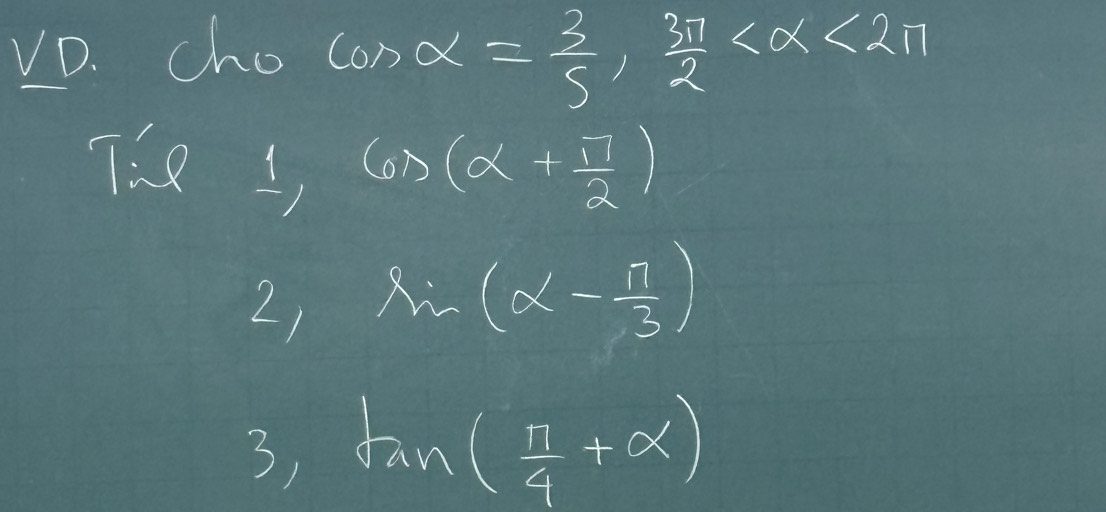 VD. Cho cosα = 3/5, 3π/2 < α < 2π
Tính 1, cos(α + π/2)
2, sin(α - π/3)
3, tan(π/4 + α)